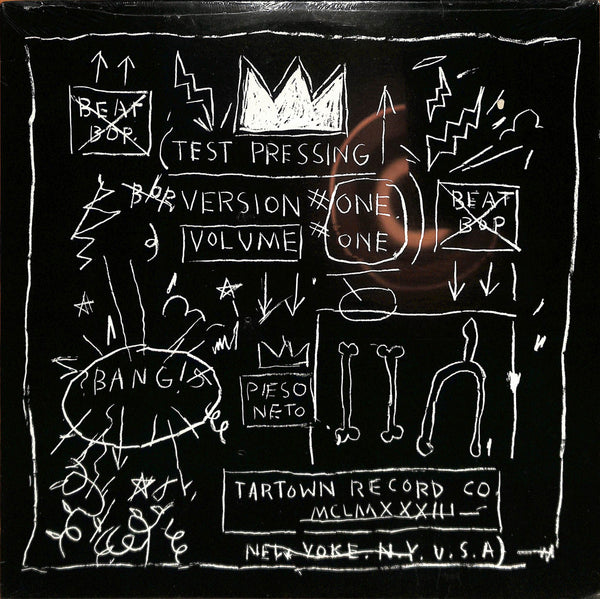 BEAT
BOP
(TEST PRESSING
BOP VERSION # ONE.
VOLUME # ONE.
BEAT
BOP
BANG!
PIESO
NETO
TARTOWN RECORD CO.
MCLMXXXIII
NEW YOKE. N.Y. U.S.A)